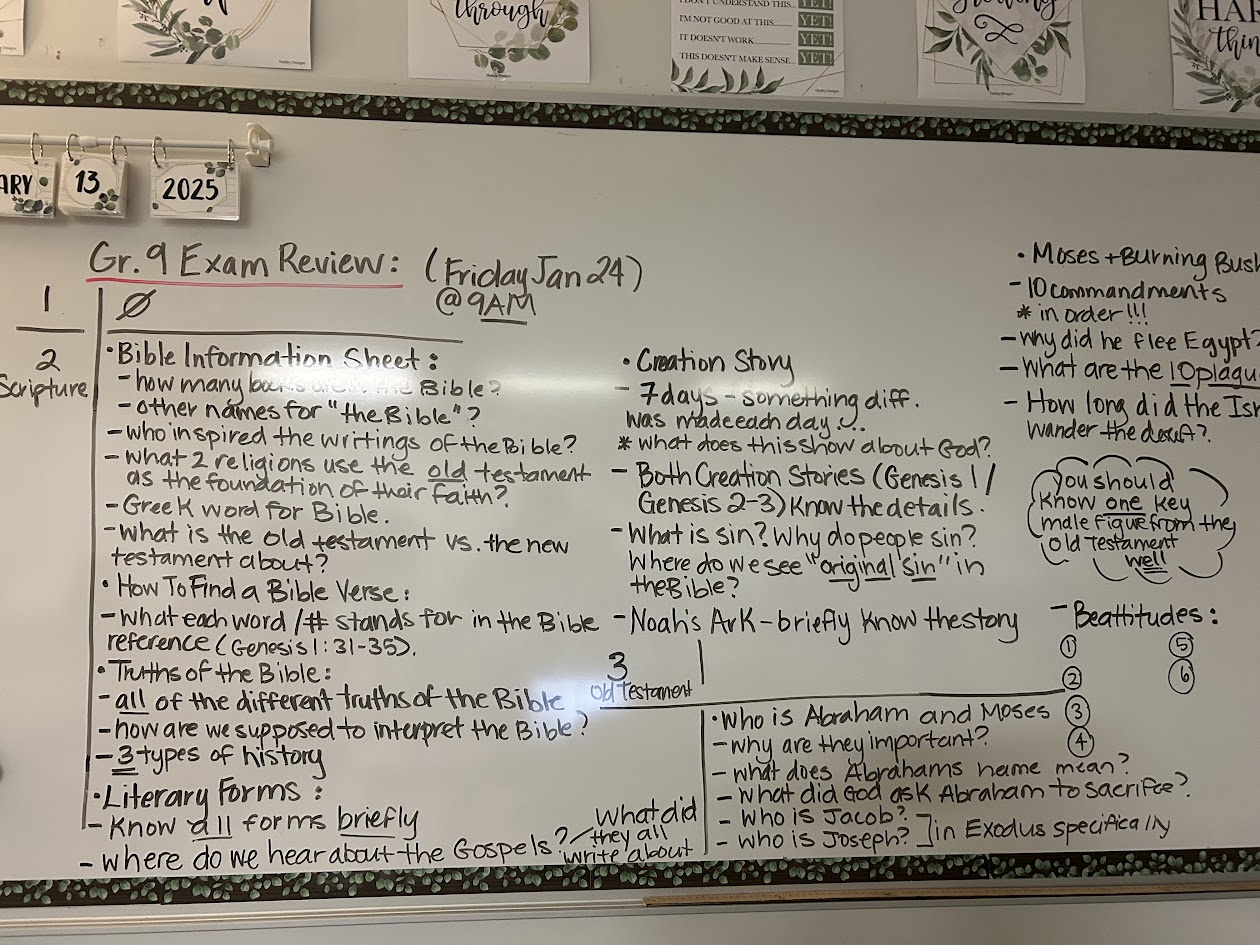 through
I DON'T UNDERSTAND THIS.. YET!
I'M NOT GOOD AT THIS YET!
IT DOESN'T WORK YET!
THIS DOESN'T MAKE SENSE... YET!
HAR
thin
ARY 13 2025
Gr. 9 Exam Review: (Friday Jan 24)
@ 9AM
1
Ø
2
Scripture
• Bible Information Sheet:
- how many books are in the Bible?
- other names for "the Bible"?
- who inspired the writings of the Bible?
- what 2 religions use the old testament
as the foundation of their faith?
- Greek word for Bible.
- What is the old testament vs. the new
testament about?
• How To Find a Bible Verse:
- what each word /# stands for in the Bible
reference (Genesis 1:31-35).
• Truths of the Bible:
- all of the different truths of the Bible
- how are we supposed to interpret the Bible?
- 3 types of history
• Literary Forms:
- Know all forms briefly
- where do we hear about the Gospels? / What did
they all
write about
• Creation Story
- 7 days - something diff.
was made each day
* what does this show about God?
- Both Creation Stories (Genesis 1/
Genesis 2-3) Know the details.
- What is sin? Why do people sin?
Where do we see "original sin" in
the Bible?
- Noah's Ark - briefly know the story
3
Old Testament
• Who is Abraham and Moses
- why are they important?
- what does Abrahams name mean?
- What did God ask Abraham to sacrifce?
- Who is Jacob?
- who is Joseph? ] in Exodus specifically
• Moses + Burning Bush
- 10 commandments
* in order!!!
- why did he flee Egypt?
- What are the 10 plagu
- How long did the Isr
wander the desert?
you should
know one key
male figure from the
old Testament
well
- Beattitudes:
① ⑤
② ⑥
③
④